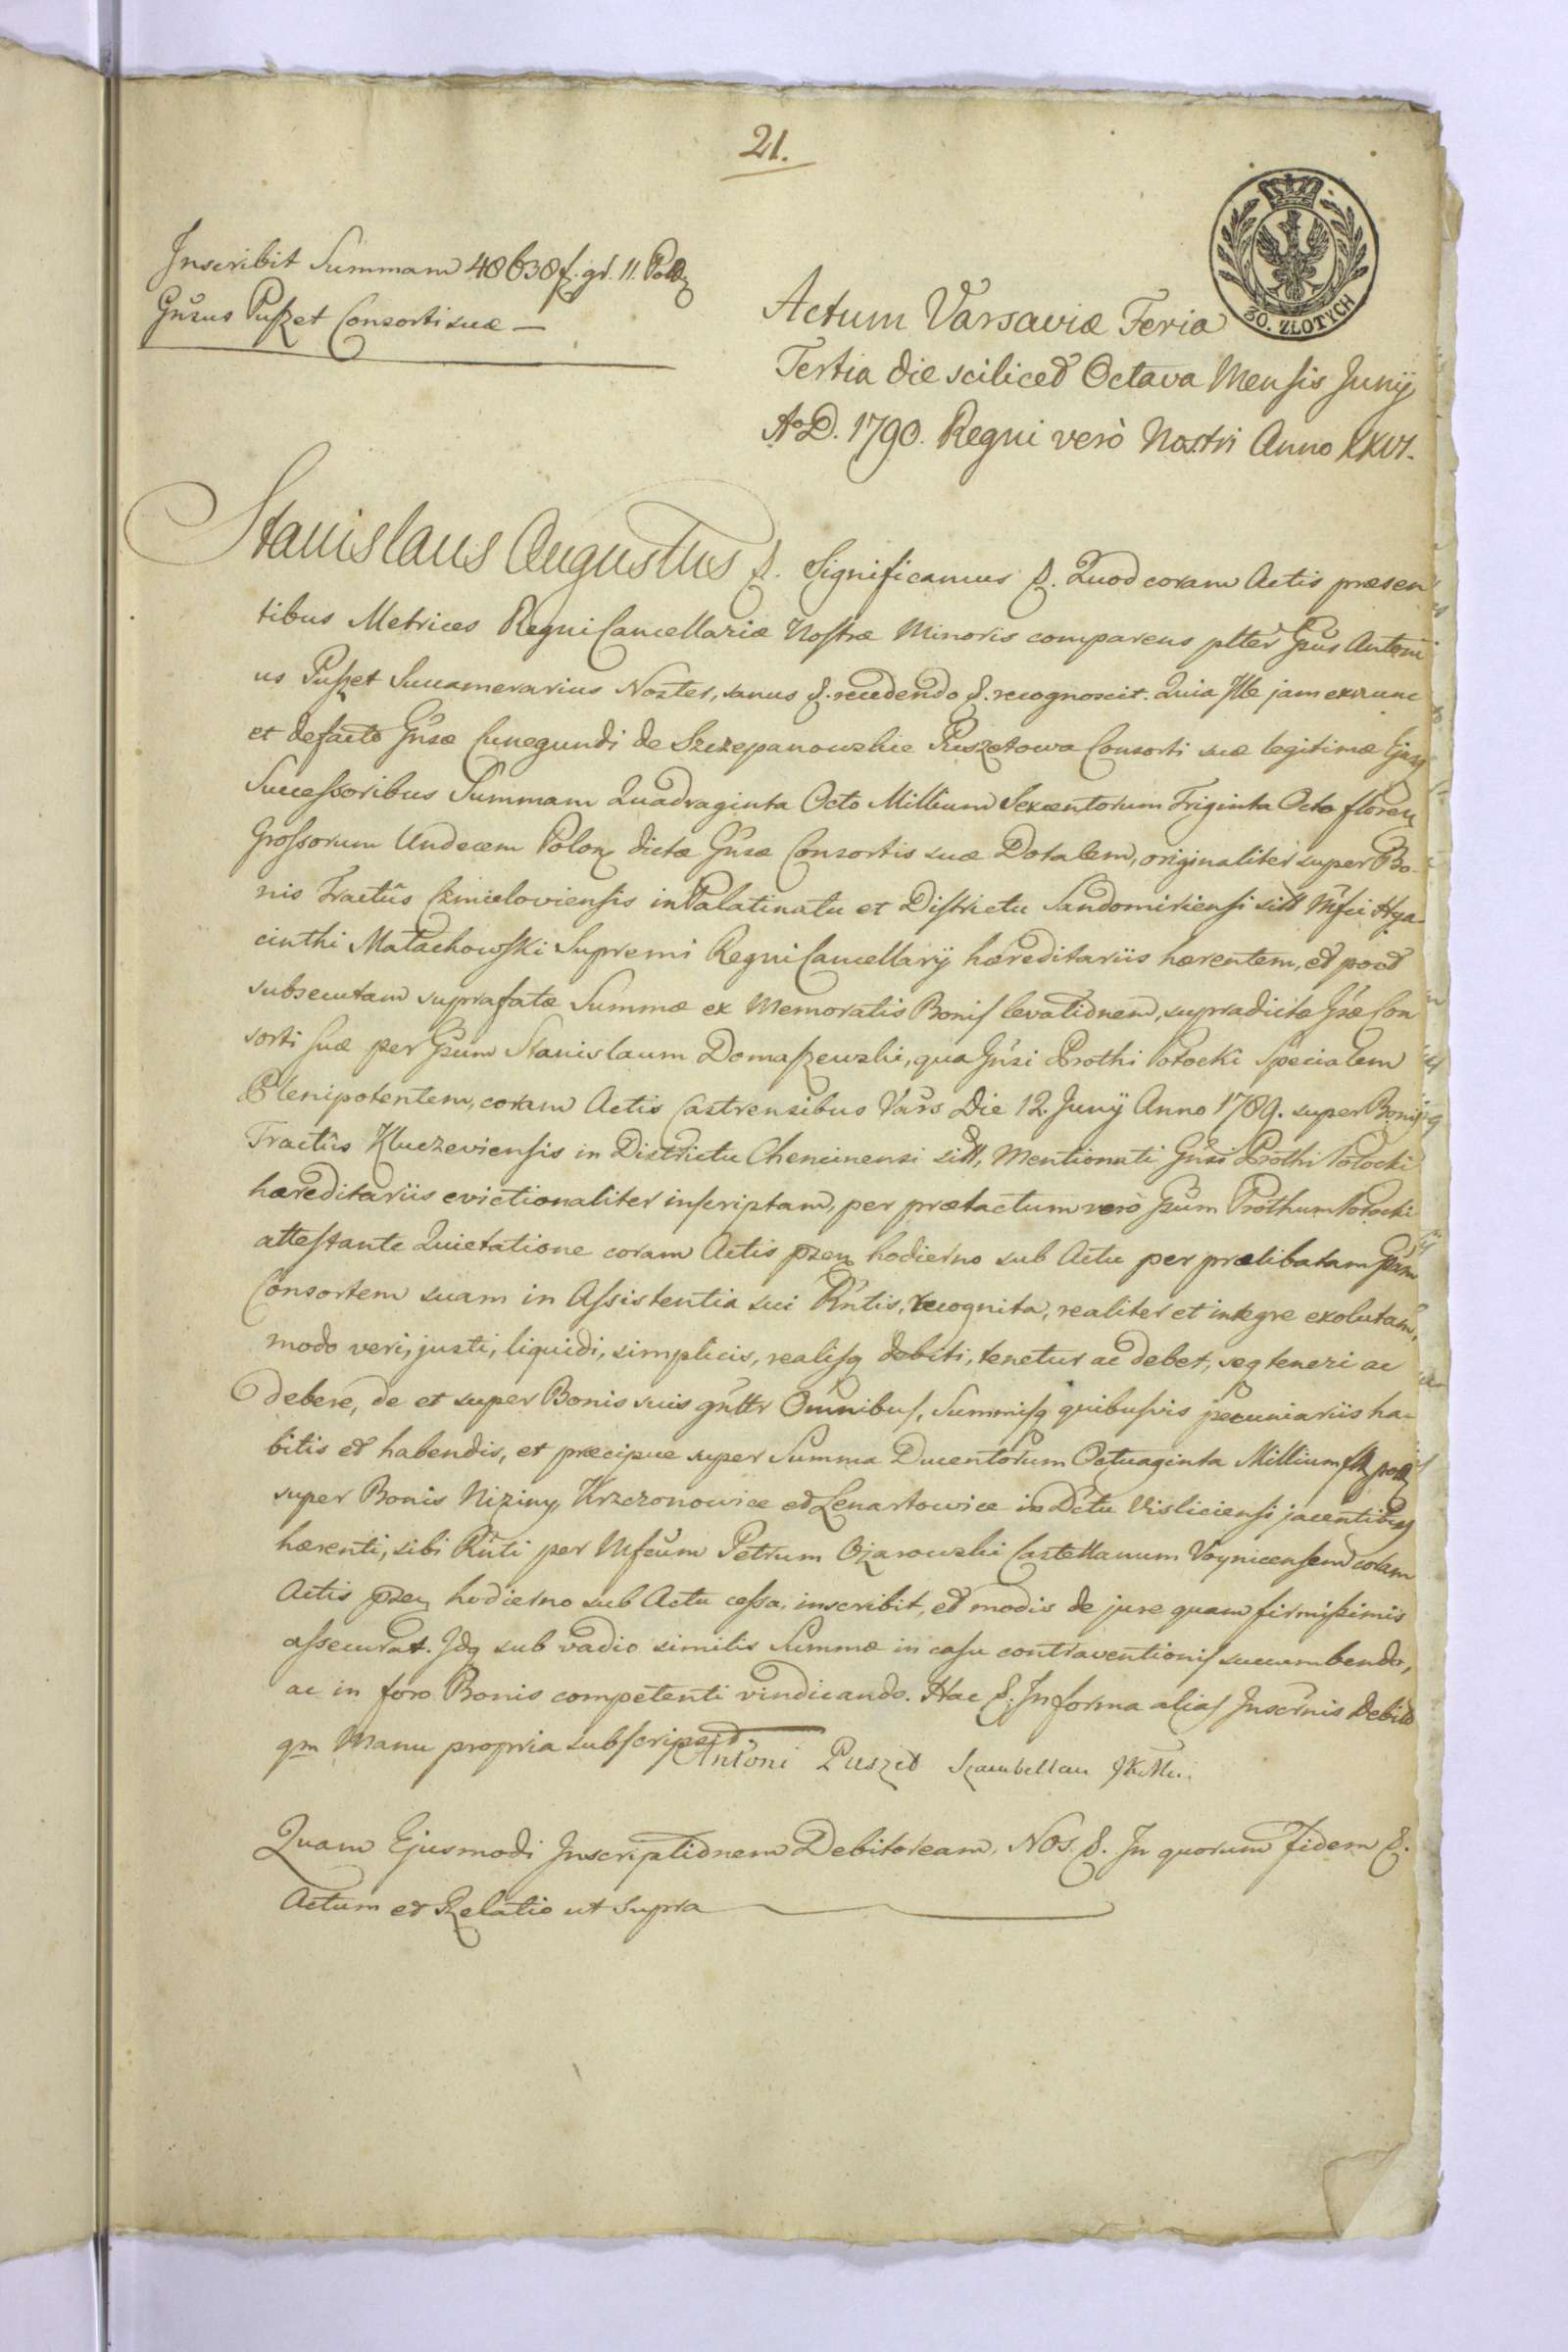 21.
30. ZŁOTYCH
Inscribit Summam 48638 f. gr. 11. Pol
Gn̄sus Puszet Consorti suæ —
Actum Varsaviæ Feria
Tertia die scilicet Octava Mensis Junij
AoD. 1790. Regni verò Nostri Anno XXVI.
Stanislaus Augustus &. Significamus &. Quod coram Actis præsen
tibus Metrices Regni Cancellariæ Nostræ Minoris comparens pltěr Gs̄us Antoni
us Puszet Succamerarius Noster, sanus &. recedendo &. recognoscit. Quia Ille jam exnunc
et defacto Gn̄sæ Cunegundi de Szczepanowskie Puszetowa Consorti suæ legitimæ Ejusq
Successoribus Summam Quadraginta Octo Millium Sexcentorum Triginta Octo floren
Grossorum Undecem Polon dictæ Gn̄sæ Consortis suæ Dotalem, originaliter super Bo-
nis Tractûs Cmieloviensis in Palatinatu et Districtu Sandomiriensi sitt Mfci Hya-
cinthi Małachowski Supremi Regni Cancellarij hæreditariis hærentem, et post
subsecutam suprafatæ Summæ ex Memoratis Bonis levationem, supradictæ Gs̄æ Con
sorti suæ per Gs̄um Stanislaum Domaszewski, qua Gn̄si Prothi Potocki Specialem
Plenipotentem, coram Actis Castrensibus Vars Die 12. Junij Anno 1789. super Bonis
Tractûs Kluczeviensis in Districtu Chencinensi sitt, Mentionati Gn̄si Prothi Potocki
hæreditariis evictionaliter inscriptam, per prætactum verò Gs̄um Prothum Potocki
attestante Quietatione coram Actis pæn hodierno sub Actu per prælibatam Gs̄am
Consortem suam in Assistentia sui Rn̄tis, recognita, realiter et integre exolutam,
modo veri, justi, liquidi, simplicis, realisq debiti, tenetur ac debet, seq teneri ac
debere, de et super Bonis suis gn̄ltr Omnibus, Summisq quibusvis pecuniariis ha-
bitis et habendis, et præcipue super Summa Ducentorum Octuaginta Millium fl pol
super Bonis Niziny, Krzczonowice et Lenartowice in Dctu Visliciensi jacentibus
hærenti, sibi Rn̄ti per Mfcum Petrum Ozarowski Castellanum Voynicensem coram
Actis pæn hodierno sub Actu cessa, inscribit, et modis de jure quam firmissimis
assecurat. Idq sub vadio similis Summæ in casu contraventionis succumbendo,
ac in foro Bonis competenti vindicando. Hac &. In forma alias Inscrn̄is Debito
qm Manu propria subscripsit.
Antoni Puszet Szambellan JKMci.
Quam Ejusmodi Inscriptionem Debitoream, NOS &. In quorum fidem &.
Actum et Relatio ut supra